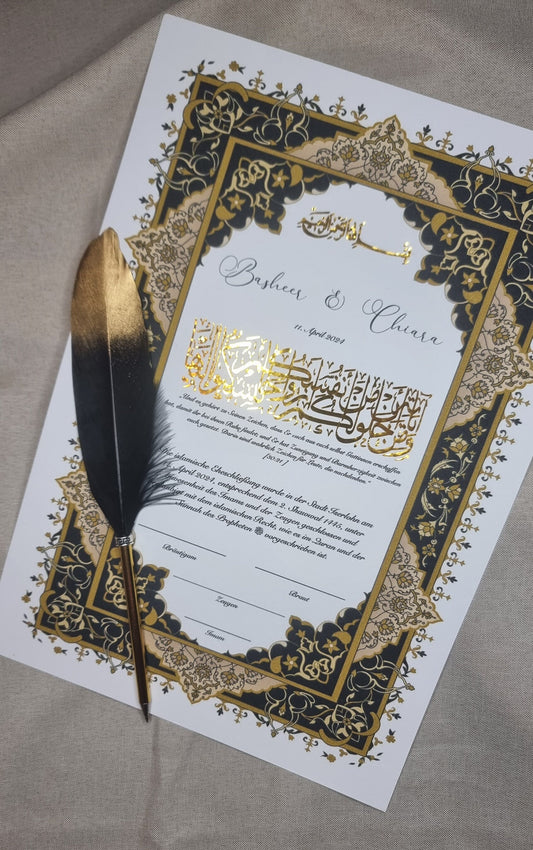 بسم الله الرحمن الرحيم
Basheer & Chiara
11. April 2024
"Und es gehört zu Seinen Zeichen, dass Er euch aus euch selbst Gattinnen erschaffen
hat, damit ihr bei ihnen Ruhe findet; und Er hat Zuneigung und Barmherzigkeit zwischen
euch gesetzt. Darin sind wahrlich Zeichen für Leute, die nachdenken."
[30:21]
Die islamische Eheschließung wurde in der Stadt Iserlohn am
April 2024, entsprechend dem 2. Shawwal 1445, unter
des Imams und der Zeugen geschlossen und
mit dem islamischen Recht, wie es im Quran und der
Sunnah des Propheten ﷺ vorgeschrieben ist.
Bräutigam Braut
Zeugen
Imam